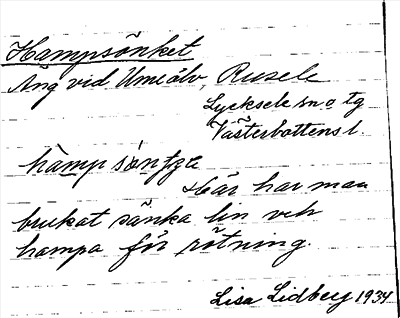 Hampsönket
Äng vid Umeälv, Rusele
Lycksele sn o tg
Västerbottens l.
Här har man
brukat sänka lin och
hampa för rötning.
Lisa Lidberg 1934